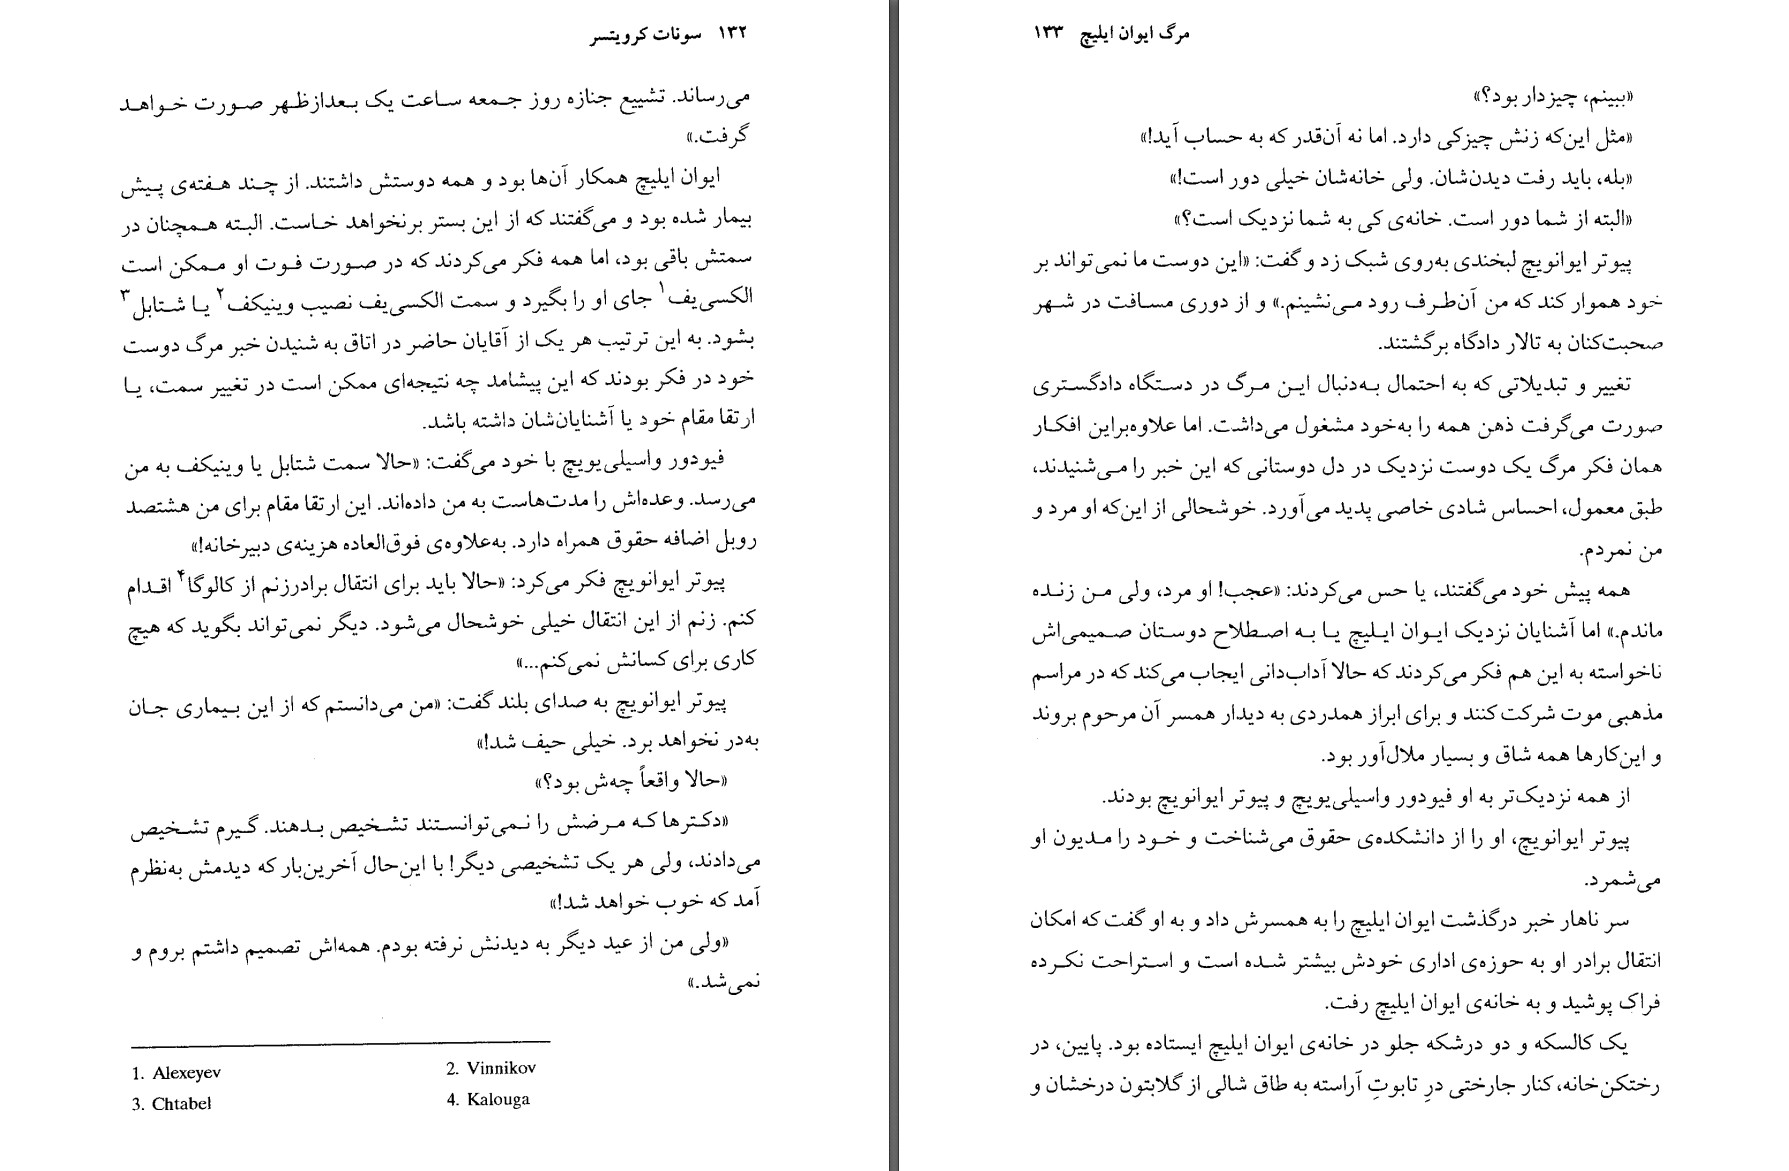 ۱۳۲ سونات کرویتسر
می‌رساند. تشییع جنازه روز جمعه ساعت یک بعدازظهر صورت خواهد
گرفت.»
ایوان ایلیچ همکار آن‌ها بود و همه دوستش داشتند. از چند هفته‌ی پیش
بیمار شده بود و می‌گفتند که از این بستر برنخواهد خاست. البته همچنان در
سمتش باقی بود، اما همه فکر می‌کردند که در صورت فوت او ممکن است
الکسی‌یف۱ جای او را بگیرد و سمت الکسی‌یف نصیب وینیکف۲ یا شتابل۳
بشود. به این ترتیب هر یک از آقایان حاضر در اتاق به شنیدن خبر مرگ دوست
خود در فکر بودند که این پیشامد چه نتیجه‌ای ممکن است در تغییر سمت، یا
ارتقا مقام خود یا آشنایان‌شان داشته باشد.
فیودور واسیلی‌یویچ با خود می‌گفت: «حالا سمت شتابل یا وینیکف به من
می‌رسد. وعده‌اش را مدت‌هاست به من داده‌اند. این ارتقا مقام برای من هشتصد
روبل اضافه حقوق همراه دارد. به‌علاوه‌ی فوق‌العاده هزینه‌ی دبیرخانه!»
پیوتر ایوانویچ فکر می‌کرد: «حالا باید برای انتقال برادرزنم از کالوگا۴ اقدام
کنم. زنم از این انتقال خیلی خوشحال می‌شود. دیگر نمی‌تواند بگوید که هیچ
کاری برای کسانش نمی‌کنم...»
پیوتر ایوانویچ به صدای بلند گفت: «من می‌دانستم که از این بیماری جان
به‌در نخواهد برد. خیلی حیف شد!»
«حالا واقعاً چه‌ش بود؟»
«دکترها که مرضش را نمی‌توانستند تشخیص بدهند. گیرم تشخیص
می‌دادند، ولی هر یک تشخیصی دیگر! با این‌حال آخرین‌بار که دیدمش به‌نظرم
آمد که خوب خواهد شد!»
«ولی من از عید دیگر به دیدنش نرفته بودم. همه‌اش تصمیم داشتم بروم و
نمی‌شد.»
1. Alexeyev 2. Vinnikov
3. Chtabel 4. Kalouga
مرگ ایوان ایلیچ ۱۳۳
«ببینم، چیزدار بود؟»
«مثل این‌که زنش چیزکی دارد. اما نه آن‌قدر که به حساب آید!»
«بله، باید رفت دیدن‌شان. ولی خانه‌شان خیلی دور است!»
«البته از شما دور است. خانه‌ی کی به شما نزدیک است؟»
پیوتر ایوانویچ لبخندی به‌روی شبک زد و گفت: «این دوست ما نمی‌تواند بر
خود هموار کند که من آن‌طرف رود می‌نشینم.» و از دوری مسافت در شهر
صحبت‌کنان به تالار دادگاه برگشتند.
تغییر و تبدیلاتی که به احتمال به‌دنبال این مرگ در دستگاه دادگستری
صورت می‌گرفت ذهن همه را به‌خود مشغول می‌داشت. اما علاوه‌براین افکار
همان فکر مرگ یک دوست نزدیک در دل دوستانی که این خبر را می‌شنیدند،
طبق معمول، احساس شادی خاصی پدید می‌آورد. خوشحالی از این‌که او مرد و
من نمردم.
همه پیش خود می‌گفتند، یا حس می‌کردند: «عجب! او مرد، ولی من زنده
ماندم.» اما آشنایان نزدیک ایوان ایلیچ یا به اصطلاح دوستان صمیمی‌اش
ناخواسته به این هم فکر می‌کردند که حالا آداب‌دانی ایجاب می‌کند که در مراسم
مذهبی موت شرکت کنند و برای ابراز همدردی به دیدار همسر آن مرحوم بروند
و این‌کارها همه شاق و بسیار ملال‌آور بود.
از همه نزدیک‌تر به او فیودور واسیلی‌یویچ و پیوتر ایوانویچ بودند.
پیوتر ایوانویچ، او را از دانشکده‌ی حقوق می‌شناخت و خود را مدیون او
می‌شمرد.
سر ناهار خبر درگذشت ایوان ایلیچ را به همسرش داد و به او گفت که امکان
انتقال برادر او به حوزه‌ی اداری خودش بیشتر شده است و استراحت نکرده
فراک پوشید و به خانه‌ی ایوان ایلیچ رفت.
یک کالسکه و دو درشکه جلو در خانه‌ی ایوان ایلیچ ایستاده بود. پایین، در
رختکن‌خانه، کنار جارختی درِ تابوتِ آراسته به طاق شالی از گلابتون درخشان و